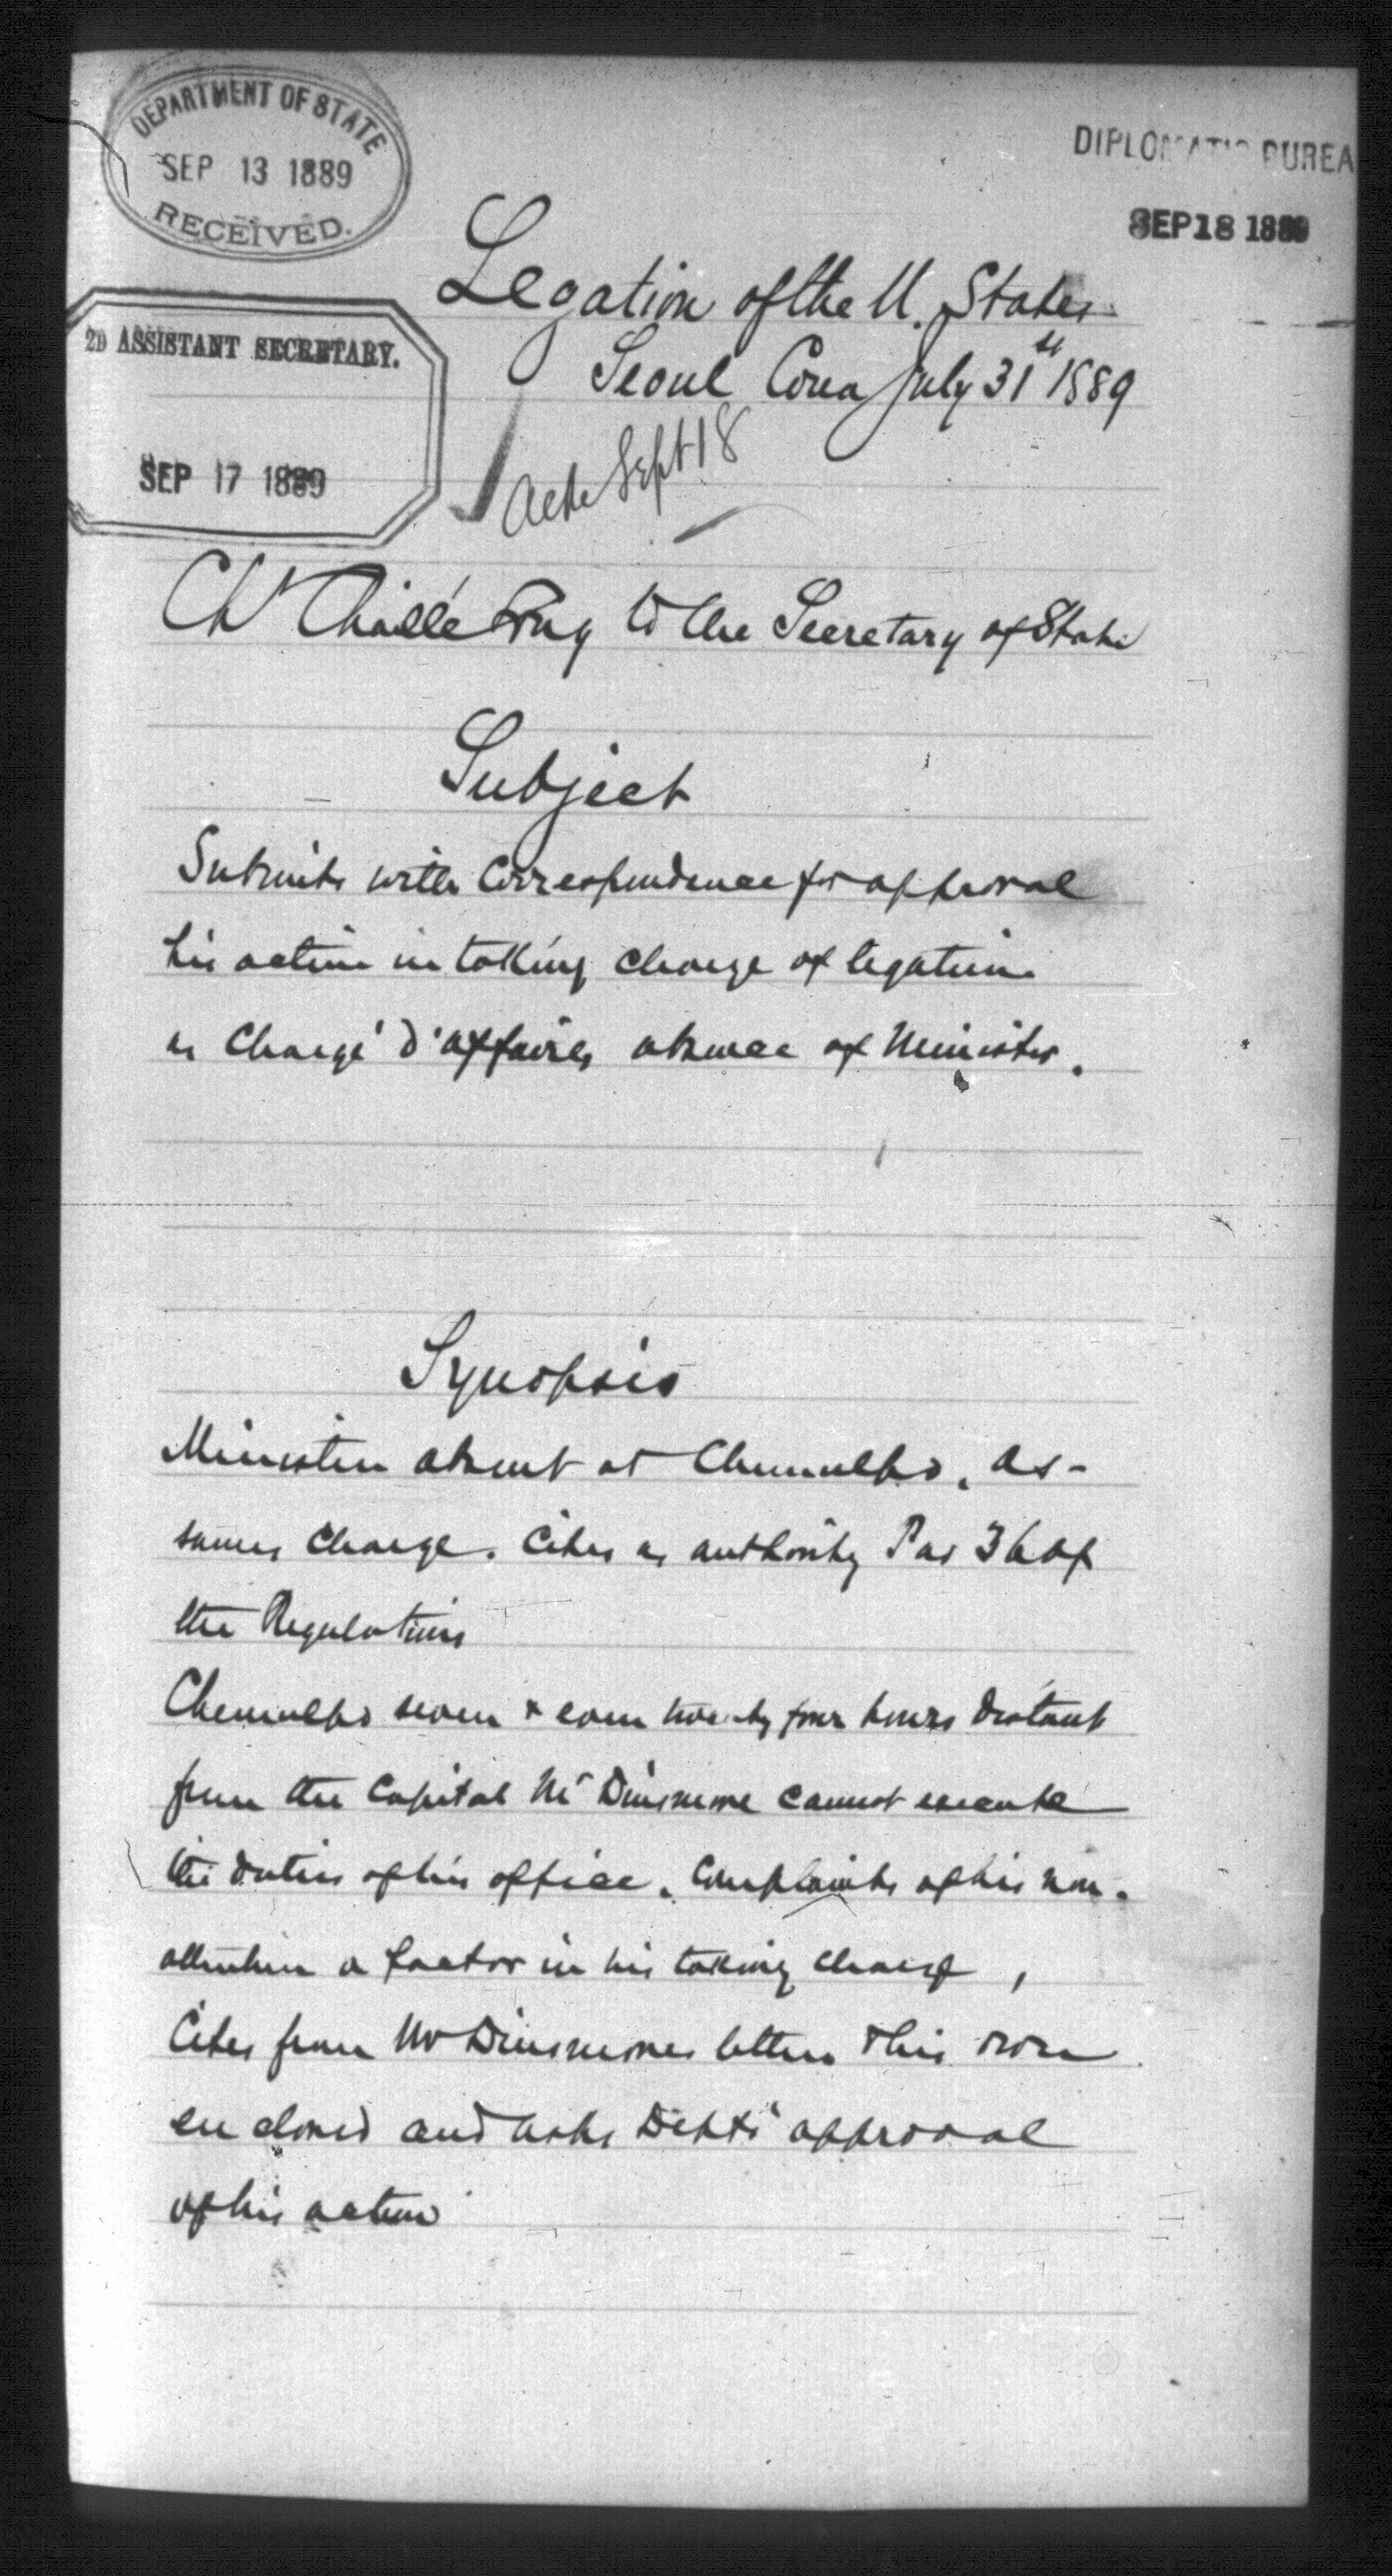 DEPARTMENT OF STATE
SEP 13 1889
RECEIVED.
DIPLOMATIC BUREA
SEP 18 1889
Legation of the U. States
2D ASSISTANT SECRETARY.
Seoul Corea July 31st 1889
SEP 17 1889
Ack Sept 18
Chaillé Long to the Secretary of State
Subject
Submits with Correspondence for approval
his action in taking charge of legation
as Chargé d'affaires absence of Minister.
Synopsis
Minister absent at Chemulpo. As-
sumes Charge. Cites as authority Par 36 of
the Regulations
Chemulpo seven & even twenty four hours distant
from the Capital Mr Dinsmore cannot execute
the duties of his office. Complaints of his non-
attention a factor in his taking charge,
Cites from Mr Dinsmores letters & his own
enclosed and asks Depts' approval
of his action